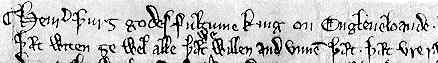 Henr' þurȝ godes fultume king on Engleneloande.
þæt witen ȝe wel alle þæt we willen and vnnē þæt. þæt vre